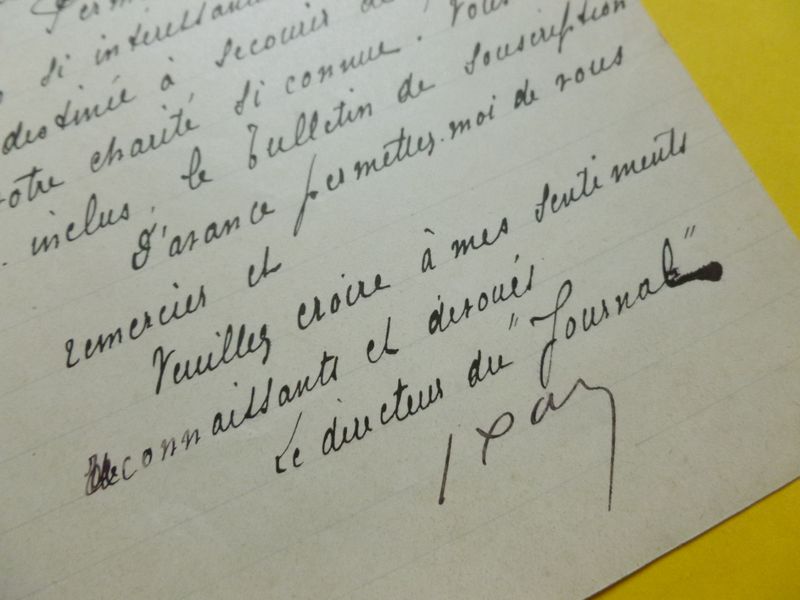 si intéressant
destinée à secourir de
otre charité si connue. Vous
inclus, le bulletin de souscription
D'avance permettez-moi de vous
remercier et
Veuillez croire à mes sentiments
reconnaissants et dévoués
Le directeur du "Journal"